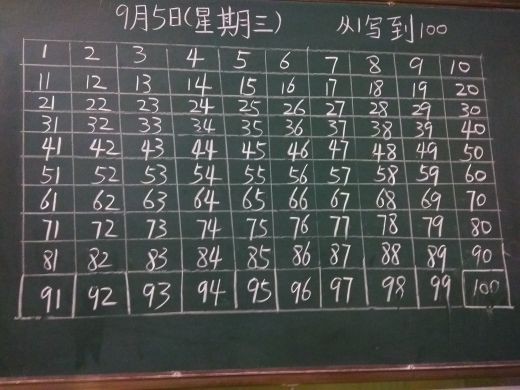 9月5日(星期三) 从1写到100
1 2 3 4 5 6 7 8 9 10
11 12 13 14 15 16 17 18 19 20
21 22 23 24 25 26 27 28 29 30
31 32 33 34 35 36 37 38 39 40
41 42 43 44 45 46 47 48 49 50
51 52 53 54 55 56 57 58 59 60
61 62 63 64 65 66 67 68 69 70
71 72 73 74 75 76 77 78 79 80
81 82 83 84 85 86 87 88 89 90
91 92 93 94 95 96 97 98 99 100